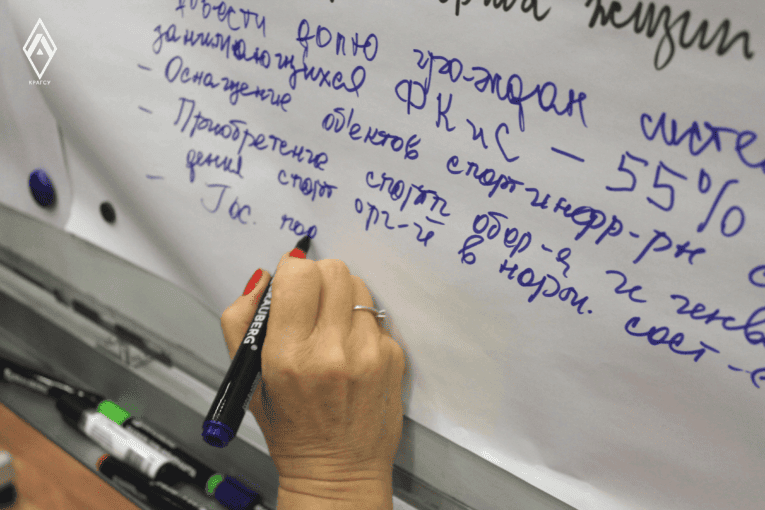 КРАГСУ
жизни
довести долю граждан систе
занимающихся ФКиС – 55%
– Оснащение объектов спортинфр-ры с
– Приобретение спорт обор-я и
дения спорт орг-й в норм. сост-
– Гос. под
BRAUBERG